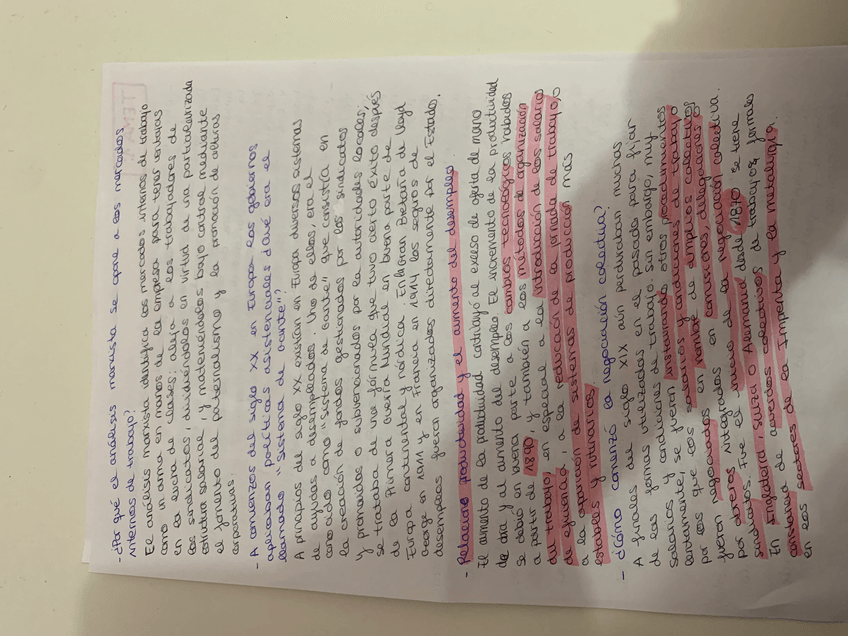 - ¿Por qué el análisis marxista se opone a los mercados
internos de trabajo?
El análisis marxista identifica los mercados internos de trabajo
como un arma en manos de la empresa para tejer ventajas
en la lucha de clases: aleja a los trabajadores de
los sindicatos, dividiéndolos en virtud de una particularizada
estructura salarial, y manteniéndolos bajo control mediante
el fomento del paternalismo y la promoción de culturas
corporativas.
- A comienzos del siglo XX en Europa los gobiernos
aplicaban políticas asistenciales ¿Qué era el
llamado "sistema de Gante"?
A principios del siglo XX existían en Europa diversos sistemas
de ayudas a desempleados. Uno de ellos, era el
conocido como "sistema de Gante" que consistía en
la creación de fondos gestionados por los sindicatos
y promovidos o subvencionados por la autoridades locales;
se trataba de una fórmula que tuvo cierto éxito después
de la Primera Guerra Mundial en buena parte de
Europa continental y nórdica. En la Gran Bretaña de Lloyd
George en 1911 y en Francia en 1914 los seguros de
desempleos fueron organizados directamente por el Estado.
- Relacione productividad y el aumento del desempleo
El aumento de la productividad contribuyó al exceso de oferta de mano
de obra y al aumento del desempleo. El incremento de la productividad
se debió en buena parte a los cambios tecnológicos habidos
a partir de 1890 y también a los métodos de organización
del trabajo, en especial a la introducción de los salarios
de eficiencia, a la reducción de la jornada de trabajo, o
a la aparición de sistemas de producción más
estables y rutinarios.
- ¿Cómo comenzó la negociación colectiva?
A finales del siglo XIX aún perduraban muchas
de las formas utilizadas en el pasado para fijar
salarios y condiciones de trabajo. Sin embargo, muy
lentamente, se fueron instaurando otros procedimientos
por los que los salarios y condiciones de trabajo
fueron negociados en nombre de amplios colectivos
por obreros integrados en comisiones, delegaciones o
sindicatos. Fue el inicio de la negociación colectiva.
En Inglaterra, Suiza o Alemania desde 1870 se tiene
constancia de acuerdos colectivos de trabajos formales
en los sectores de la Imprenta y la metalurgia.